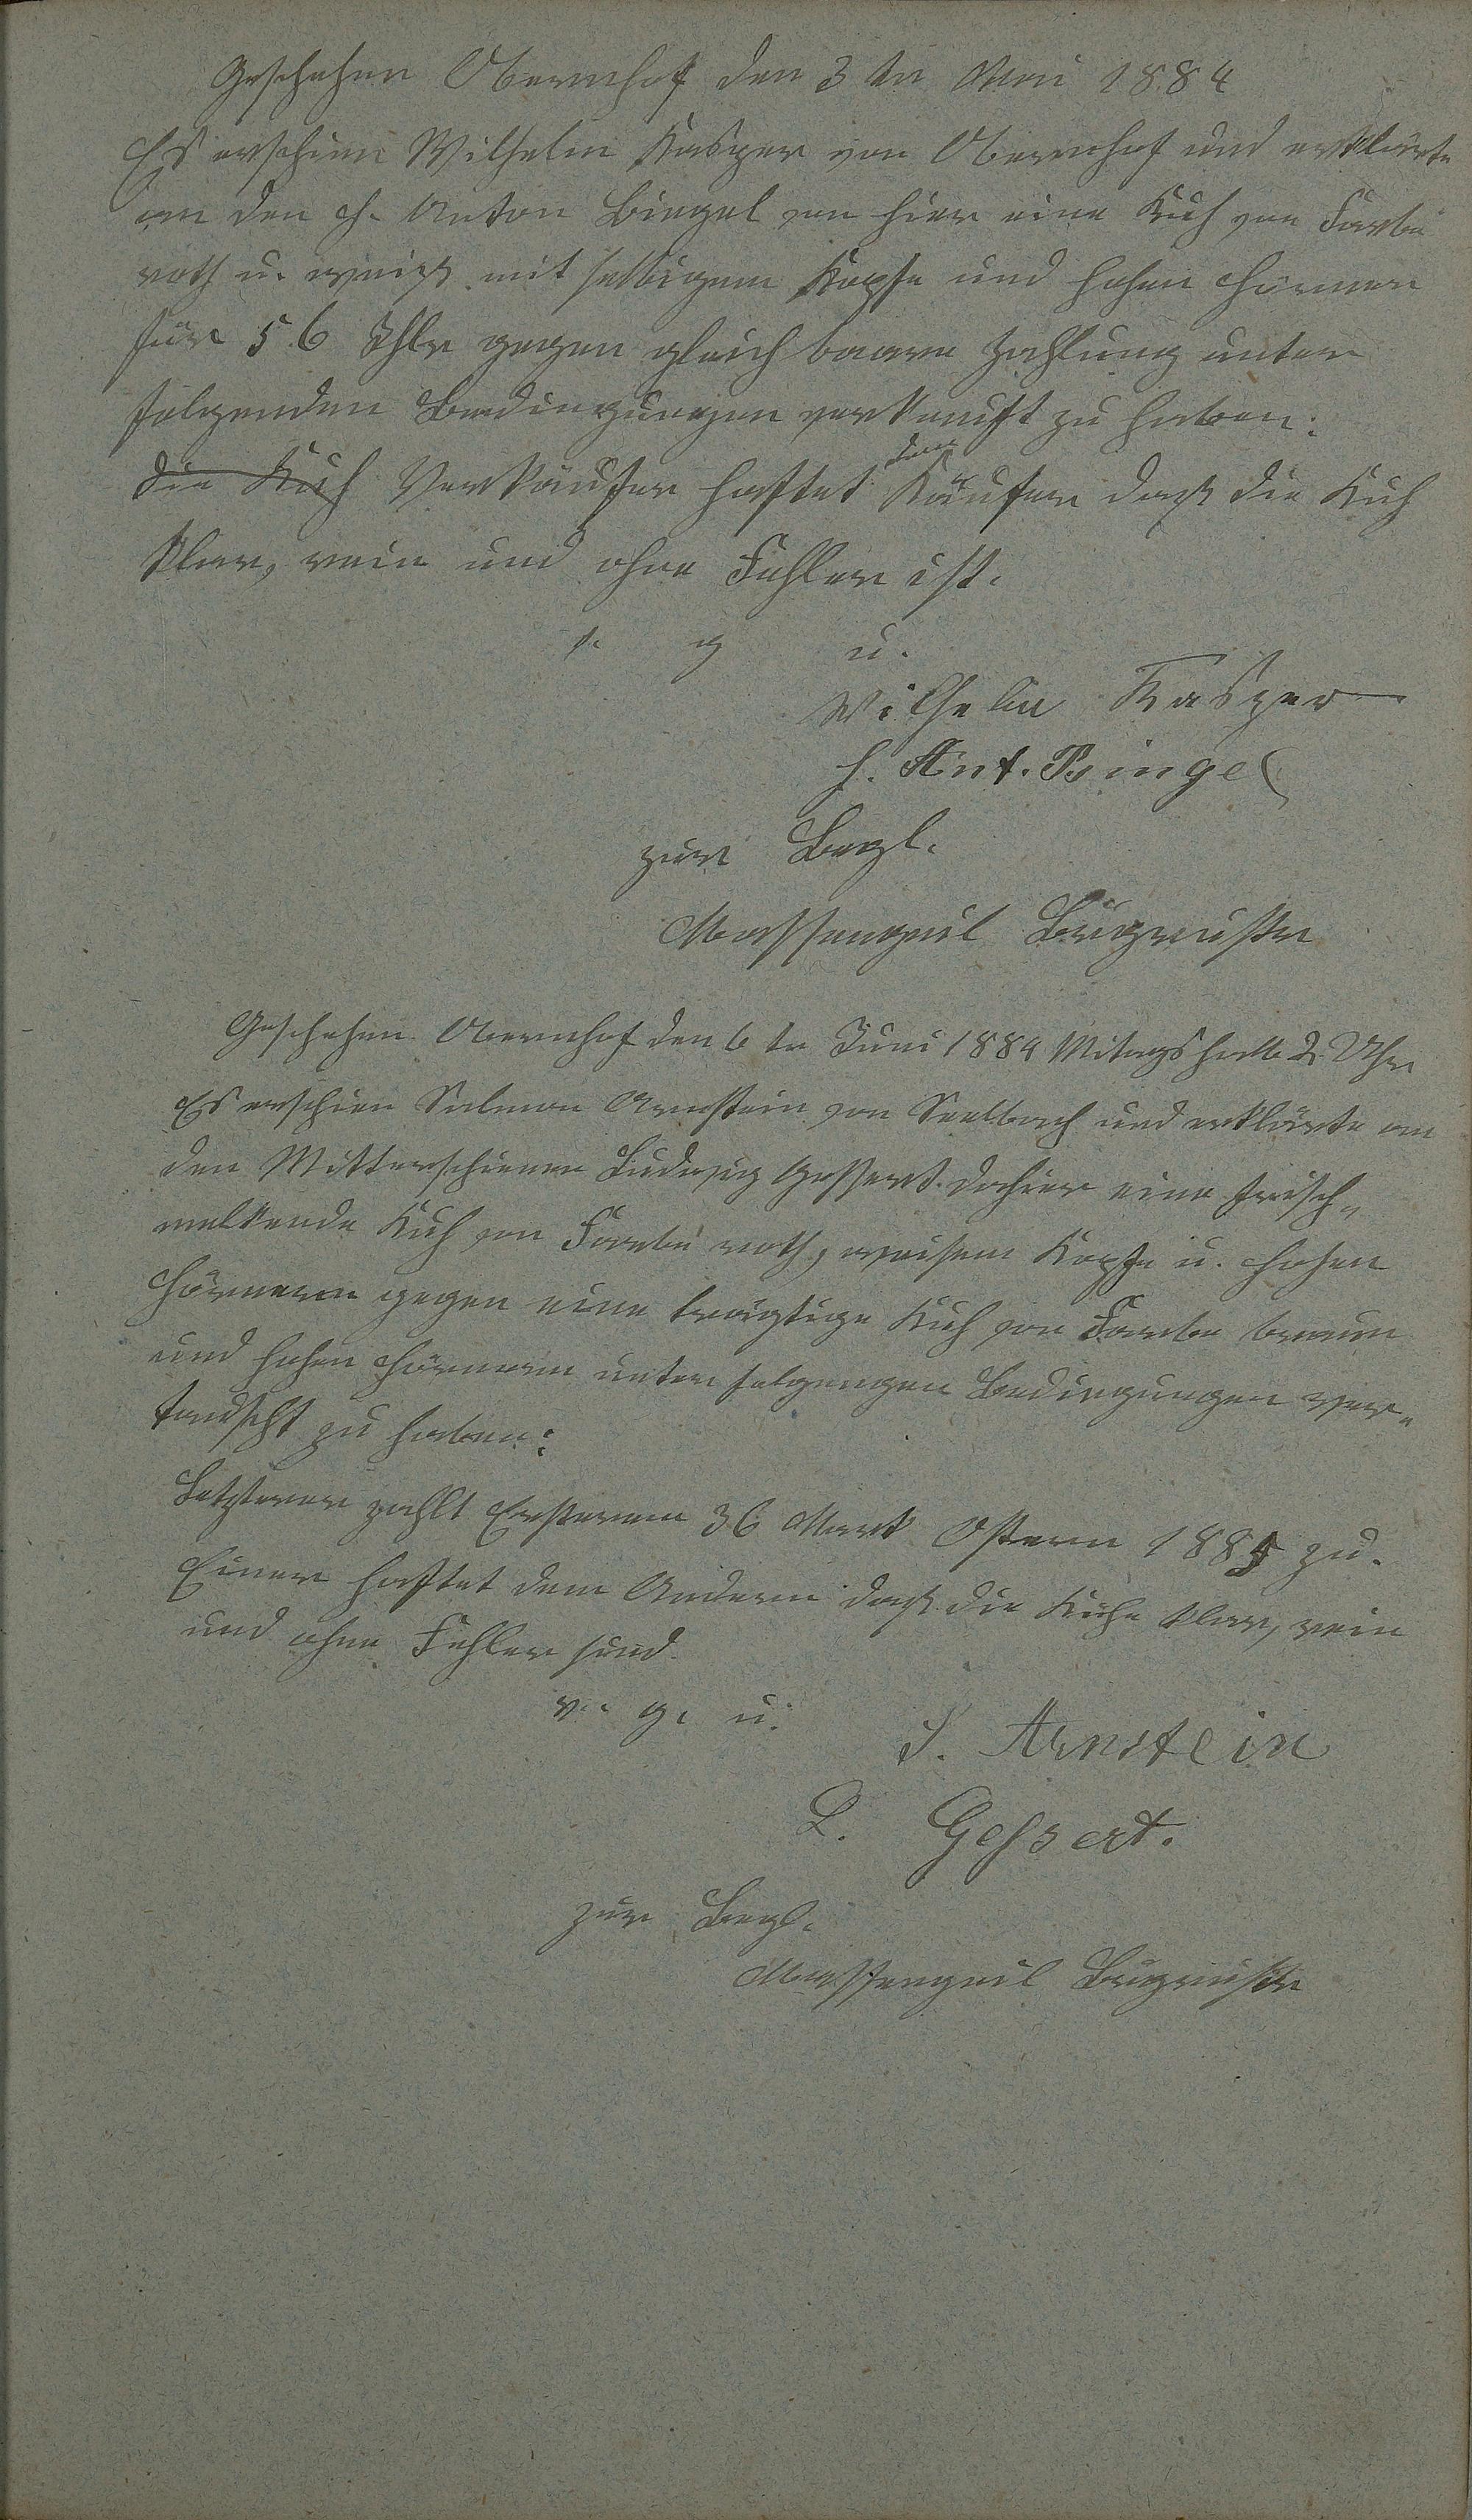 Geschehen Obernhof den 3 ten Mai 1884
Es erschien Wilhelm Kasper von Obernhof und erklärte
an den H. Anton Bingel von hier eine Kuh von Farbe
roth u. weiß mit selbigem Kopfe und hohen Hörner
für 56 Thlr gegen gleich baare Zahlung unter
folgenden Bedingungen verkauft zu haben:
die Kuh Verkäufer haftet dem Käufer daß die Kuh
klar, rein und ohne Fehler ist.
v. g u.
Wilhelm Kasper
H. Ant. Bingel
zur Begl.
Massengeil Bürgmstr
Geschehen Obernhof den 6 ten Juni 1884 Mitags halb 2 Uhr
Es erschien Salmon Arnstein von Seelbach und erklärte an
den Mitterschienen Ludwig Gessert dahier eine frisch„
melkende Kuh von Farbe roth, weisem Kopfe u. hohen
Hörnern gegen eine trägtige Kuh von Farbe braun
und hohen Hörnern unter folgengen Bedingungen ver„
tauscht zu haben:
Letzterer zahlt Ersterem 36 Mark Ostern 1885 zu.
Einer haftet dem Andern daß die Kühe klar, rein
und ohne Fehler sind.
v. g. u.
S. Arnstein
L. Gessert.
zur Begl.
Massengeil Bürgmstr